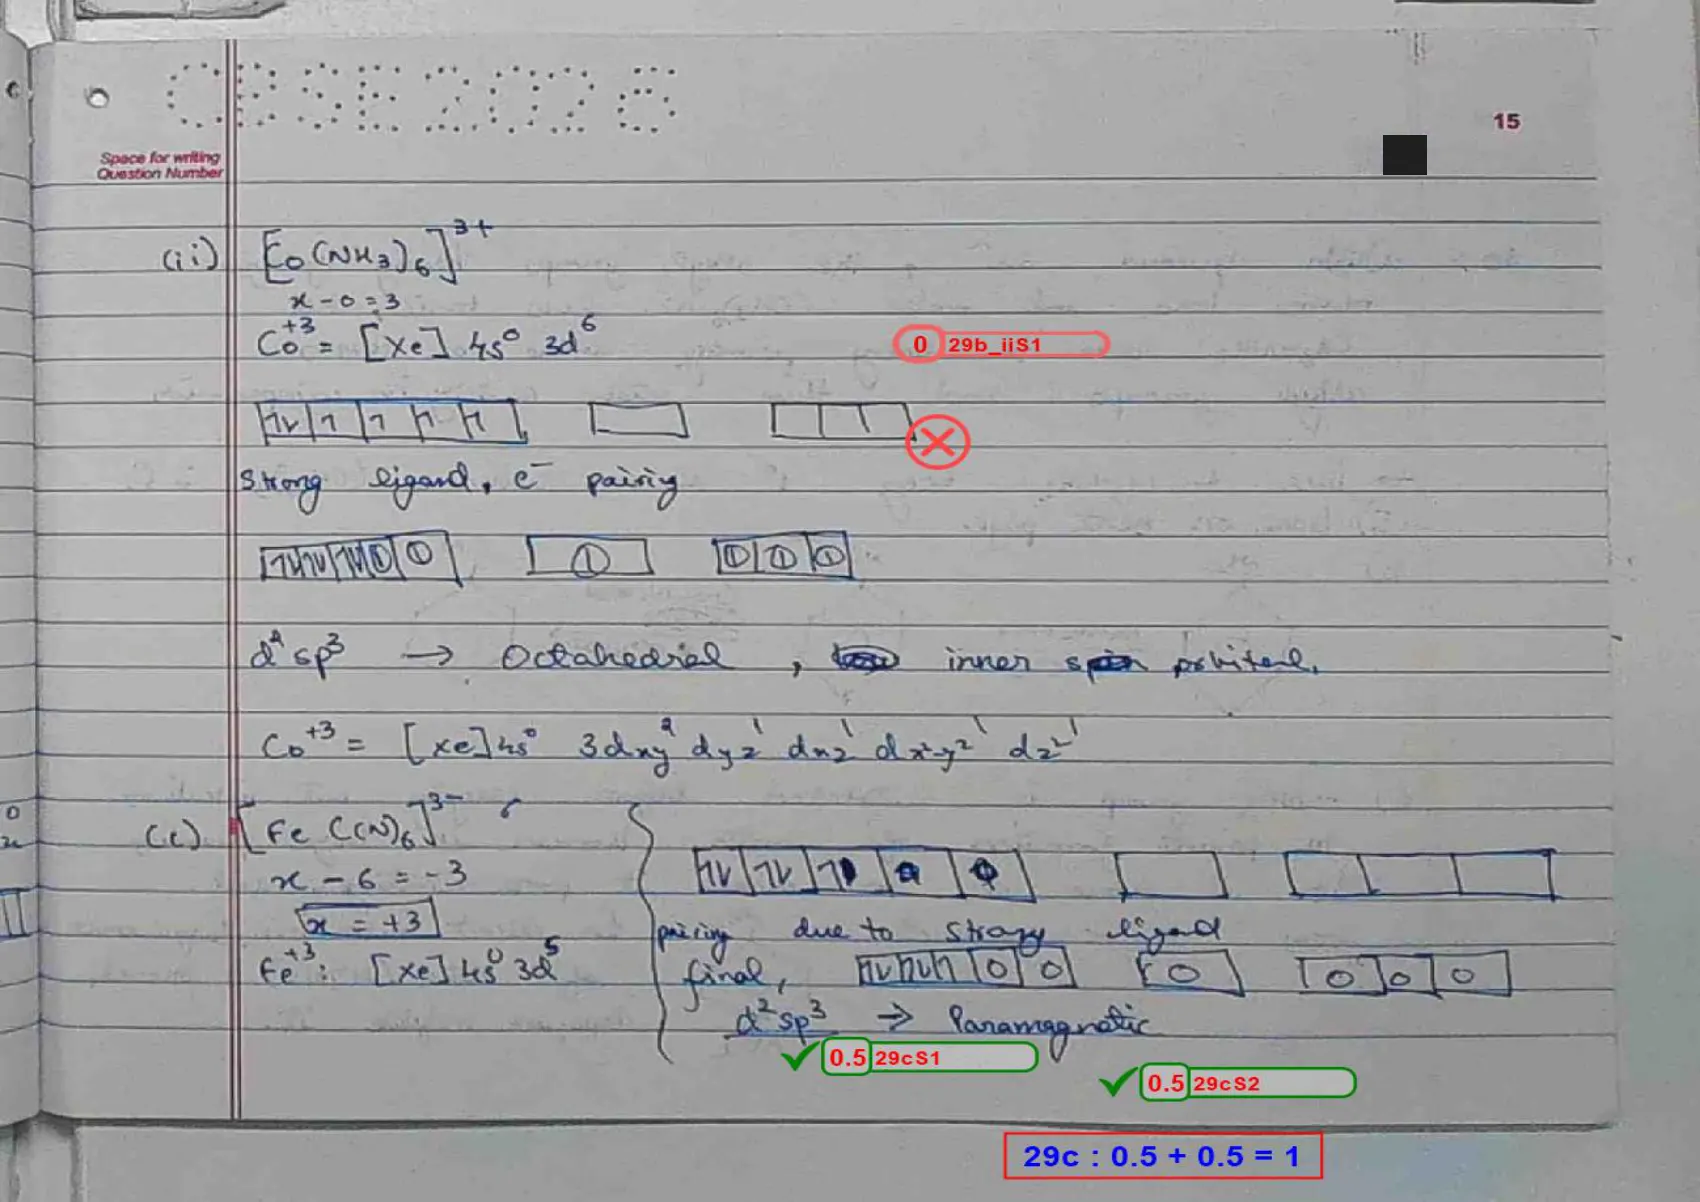 CBSE2026
15
Space for writing
Question Number
(ii) [Co(NH3)6]3+
x - 0 = 3
Co+3 = [Xe] 4s0 3d6
0 29b_iiS1
Strong ligand, e- pairing
d2sp3 → Octahedral, inner orbital.
Co+3 = [Xe]4s0 3dxy2 dyz1 dxz1 dx2-y21 dz21
(c) [Fe(CN)6]3-
x - 6 = -3
x = +3
Fe+3: [Xe]4s0 3d5
pairing due to strong ligand
final,
d2sp3 → Paramagnetic
0.5 29cS1
0.5 29cS2
29c : 0.5 + 0.5 = 1